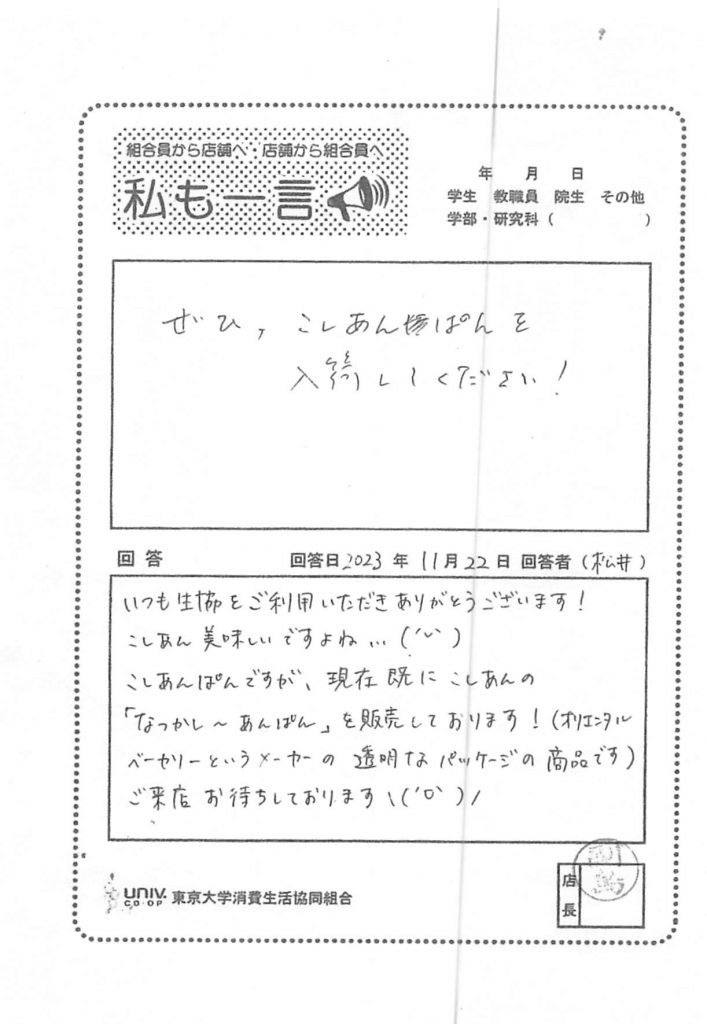 組合員から店舗へ 店舗から組合員へ
私も一言
年 月 日
学生 教職員 院生 その他
学部・研究科( )
ぜひ,こしあんぱんを
入荷してください!
回答 回答日2023年11月22日 回答者(松井)
いつも生協をご利用いただきありがとうございます!
こしあん美味しいですよね…
こしあんぱんですが、現在既にこしあんの
「なつかし〜あんぱん」を販売しております!(オリエンタル
ベーカリーというメーカーの透明なパッケージの商品です)
ご来店お待ちしております\('o')/
UNIV. CO-OP 東京大学消費生活協同組合
店長